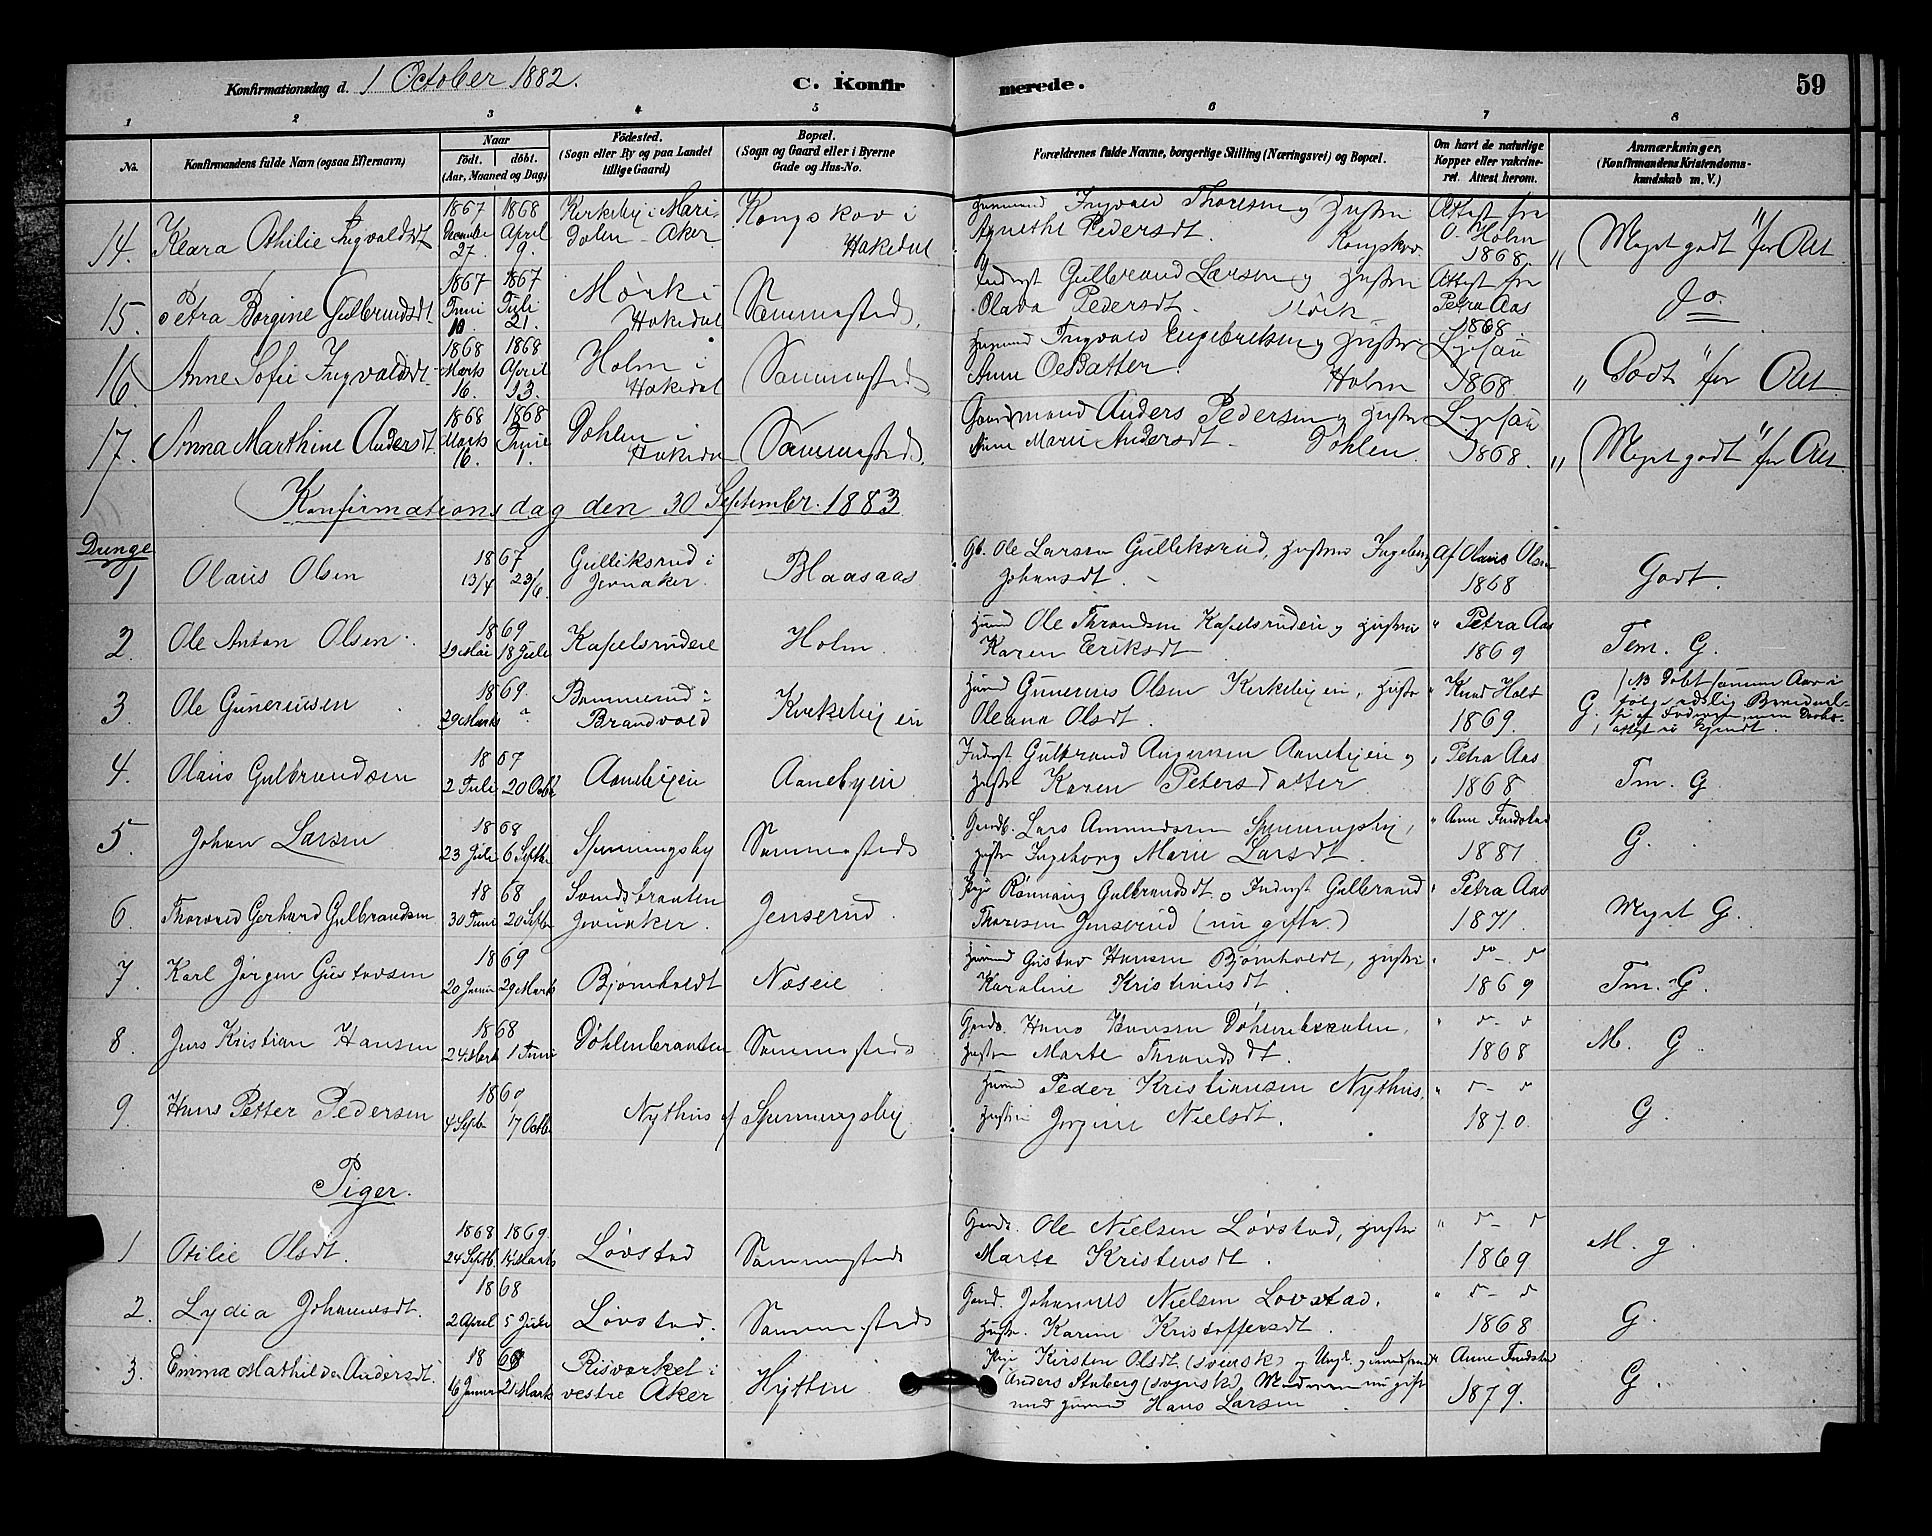 Konfirmationsdag d. 1 October 1882. C. Konfirmerede. 59
1 2 3 4 5 6 7 8
No. Konfirmandens fulde Navn (ogsaa Efternavn) Naar födt. döbt. (Aar, Maaned og Dag) Födested. (Sogn eller By og paa Landet tillige Gaard) Bopæl. (Sogn og Gaard eller i Byerne Gade og Hus-No. Forældrenes fulde Navne, borgerlige Stilling (Næringsvei) og Bopæl. Om havt de naturlige Kopper eller vakcineret. Attest herom. Anmærkninger. (Konfirmandens Kristendomskundskab m. V.)
14. Klara Othilie Ingvaldsdt 1867 27. 1868 April 9. Kirkeby i Maridalen - Aker Kongskov i Hakedal Husmand Ingvald Thoresen og Hustru Agnethe Pedersdt. Kongskov Attest fra O. Holm 1868. „ Meget godt " for Alt
15. Petra Borgine Gulbrandsdt 1867 Juni 10. 1867 Juli 21. Mørk i Hakedal Sammesteds. Inderst Gulbrand Larsen og Hustru Olava Pedersdt. Mörk Attest fra Petra Aas 1868 Do
16. Anne Sofie Ingvaldsdt 1868 Marts 16. 1868 April 13. Holm i Hakedal Sammesteds Husmand Ingvald Engebretsen og Hustru Anne Holm 1868. „ Godt " for Alt
17. Anna Marthine Andersdt. 1868 Marts 16. 1868 Juni 1. Døhlen i Hakedal Sammesteds. Gaardmand Anders Pedersen og Hustru Anne Marie Andersdt - Döhlen 1868. „ Meget godt " for Alt
Konfirmationsdag den 30 September 1883
Drenge
1 Olaus Olsen 1867 13/4 23/6 Gulliksrud i Jevnaker. Blaasaas Gb. Ole Larsen Gulliksrud, Hustru Ingeborg Johansdt. Af Olaus Olsen 1868 Godt.
2. Ole Anton Olsen. 1869 19 Mai 18 Juli Kapelsrudeie Holm. Husmd Ole Thrandsen Kapelsrudeie og Hustru Karen Eriksdt " Petra Aas 1869 Tem. G.
3. Ole Guneriusen 1869. 29 Marts ? i Brandvold Kirkebyein Husmd Gunerius Olsen Kirkebyein, Hustr Oleana Olsdt. " Knud Holt 1869. G.
4. Olaus Gulbrandsen 1867 2 Juli 20 Octb Aanebyein Aanebyein Inderst Gulbrand Aanebyein og Hustru Karen Petersdatter " Petra Aas 1868 Tm. G
5. Johan Larsen 1868 23 Juli 6 Septbr Spenningsby Sammesteds Gaardb. Lars Amundsen Spenningsby, Hustru Ingeborg Marie Larsdt. " Anne Fundstad 1881 G.
6 Thorvald Gerhard Gulbrandsen 1868 30 Juni 20 Septbr Jevnaker. Jenserud. Pige Rønnaug Gulbrandsdt. og Inderst Gulbrand Thoresen Jenserud (nu gifte.) " Petra Aas 1871. Meget G.
7. Karl Jörgen Gustavsen 1869 20 Januar 29 Marts Bjørnholdt Næseie Husmd Gustav Hansen Bjørnholdt, Hustru Karoline Kristiansdt. " do - do 1869 Tm. G.
8. Jens Kristian Hansen 1868 24 Marts 1 Juni Döhlenbraaten Sammesteds Gaardb. Hans Hansen Døhlenbraaten, Hustru Marte Thrandsdt. " do - do 1868 M. G.
9. Hans Petter Pedersen 4 Septbr 17 Octbr Nythus af Spenningsby Husmd Peder Kristiansen Nythus, Hustru Jorgine Nielsdt. " do - do 1870. G.
Piger.
1 Otilie Olsdt. 1868 24 Septb. 1869. 14 Marts Løvstad Sammesteds Gaardb. Ole Nielsen Løvstad, Hustru Marte Kristensdt. " do - do 1869 M. g.
2. Lydia Johannesdt. 1868 2 April 5 Juli Løvstad. Sammesteds Gaardb. Johannes Nielsen Lovstad, Hustr. Karine Kristoffersdt. " do - do 1868 G.
3. Emma Mathilde Andersdt. 1868 16 Januar 21 Marts Risværket i vestre Aker Hytten Pige Kirsten Olsdt. (svensk) og Ungk. og Anders Stuberg (svensk) Moderen nu gift med Husmd Hans Larsen " Anne Fundstad 1879. G.